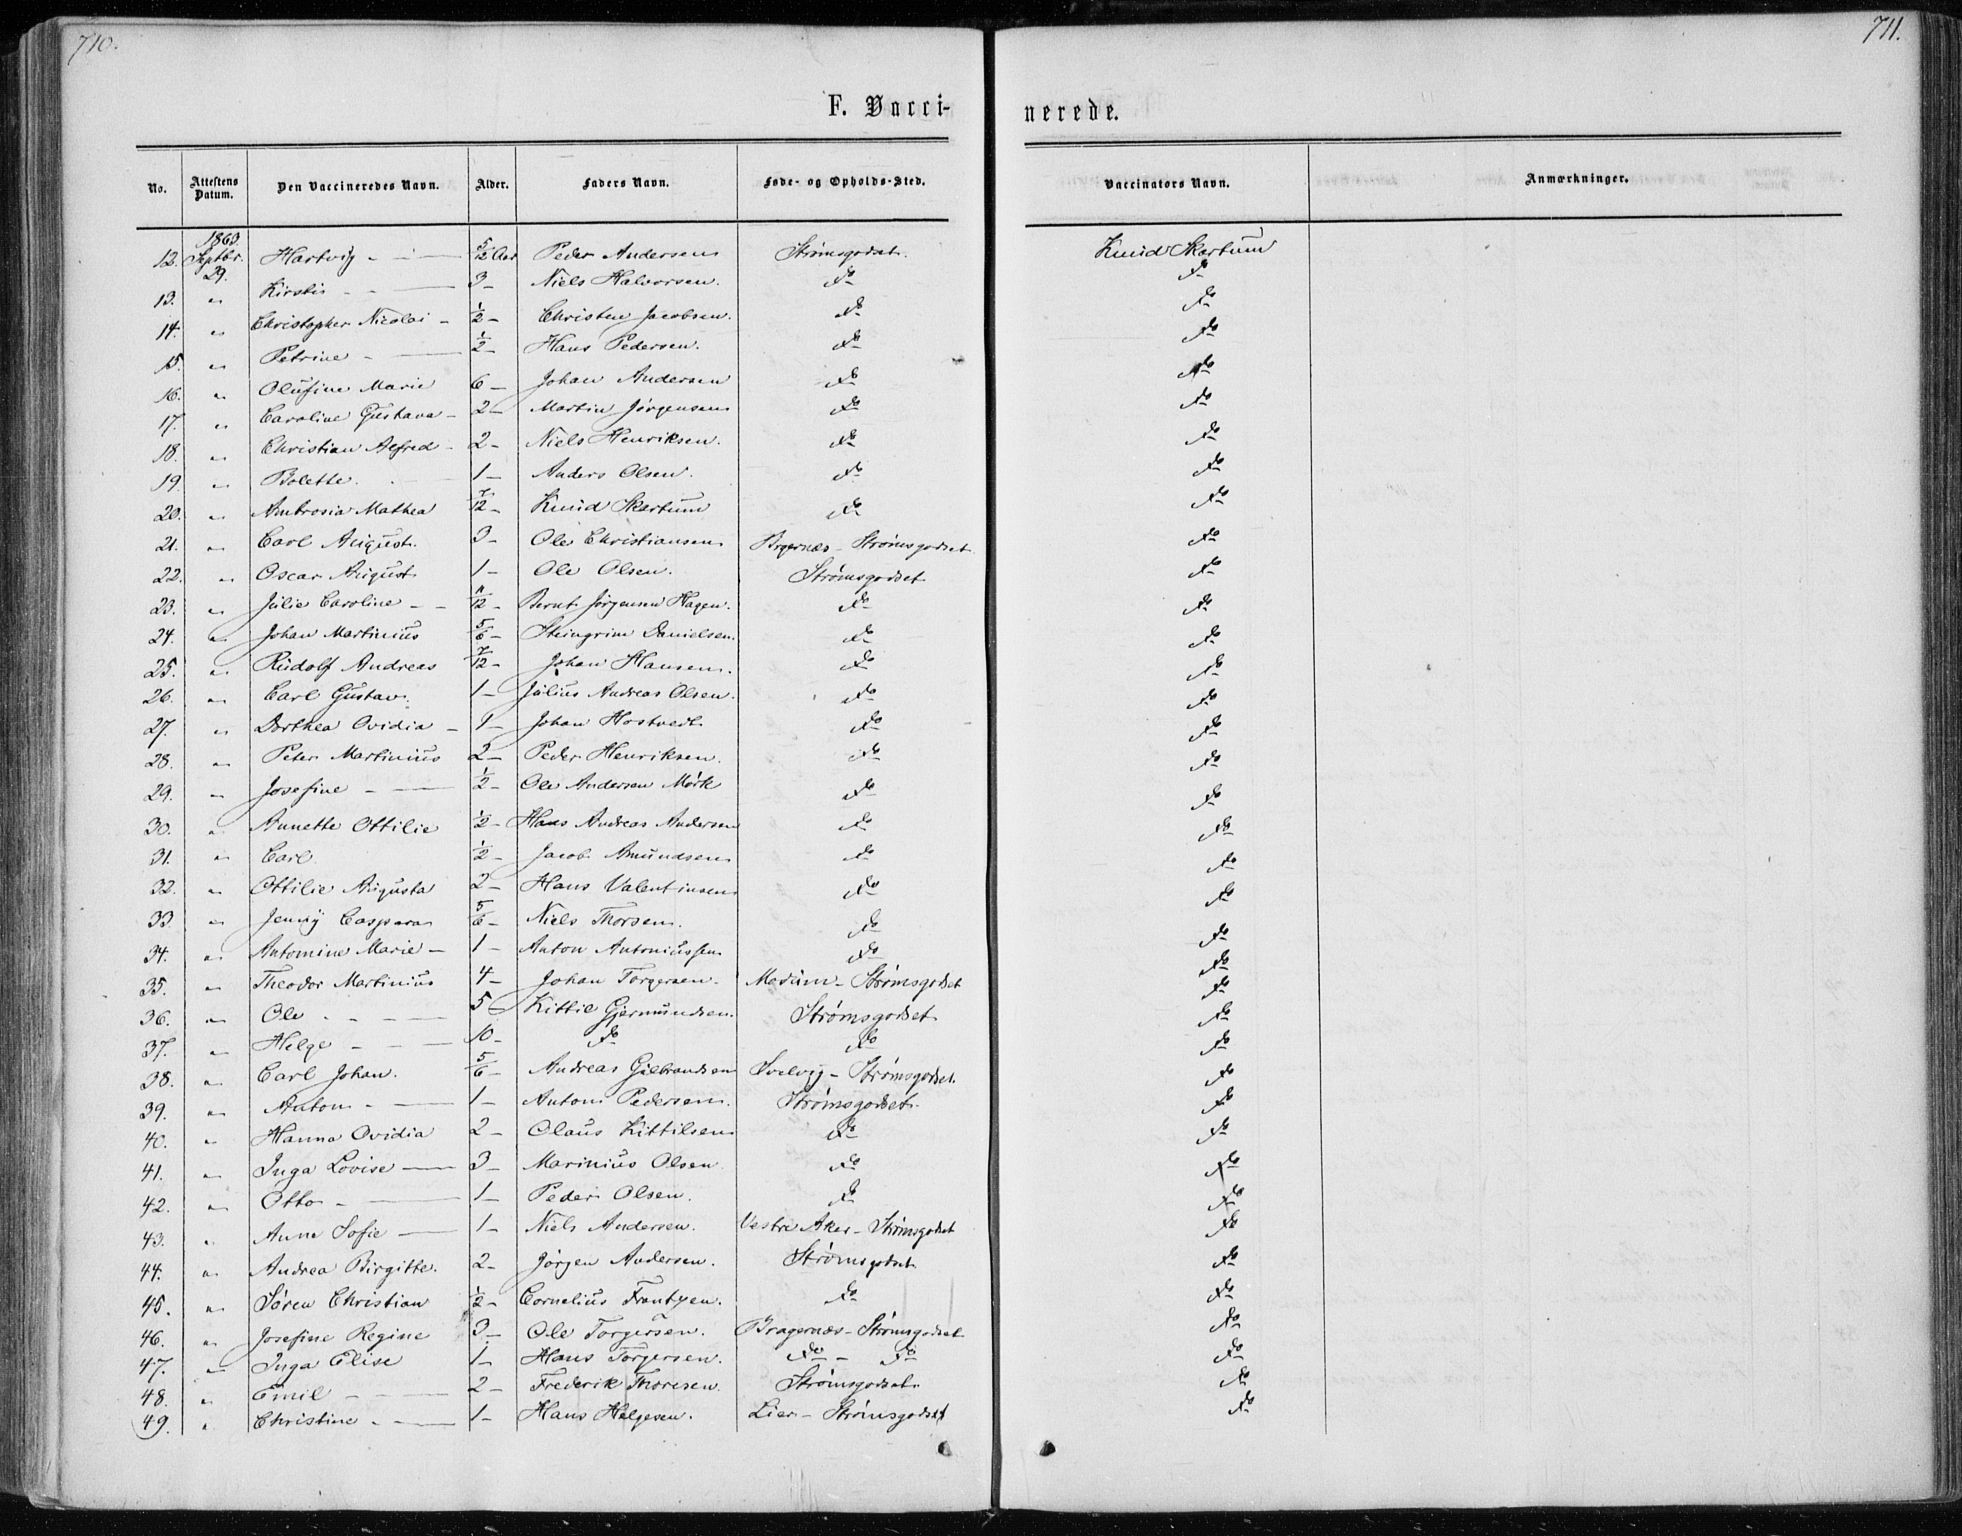 710. 711.
F. Vacci- nerede.
No. Attestens Datum. Den Vaccineredes Navn. Alder. Faders Navn. Føde- og Opholds-Sted. Vaccinators Navn. Anmærkninger.
1863
12. Septbr. 29. Hartvig - - 5/12 Aar Peder Andersen Strømsgodset. Knud Skartum
13. " Kirstis - - 3 - Niels Halvorsen. Do Do
14. " Christopher Nicolai - 1/2 - Christen Jacobsen. Do Do
15. " Petrine - 1/2 - Hans Pedersen. Do Do
16. " Olufine Marie 6 - Johan Andersen Do Do
17. " Caroline Gustava - 2 - Martin Jørgensen Do Do
18. " Christian Alfred - 2 - Niels Henriksen. Do Do
19. " Bolette. 1 - Anders Olsen. Do Do
20. " Ambrosia Mathea 7/12 - Knud Skartum Do Do
21. " Carl August. 3 - Ole Christiansen Bragernæs - Strømsgodset Do
22. " Oscar August 1 - Ole Olsen. Strømsgodset Do
23. " Julie Caroline - - 11/12 - Bernt Jørgensen Hagen. Do Do
24. " Johan Martinius 5/6 - Steingrim Danielsen. Do Do
25. " Rudolf Andreas 7/12 - Johan Hansen. Do Do
26. " Carl Gustav. 1 - Julius Andreas Olsen. Do Do
27. " Dorthea Ovidia - 1 - Johan Hostvedt Do Do
28. " Peter Martinius 2 - Peder Henriksen. Do Do
29. " Josefine - 1/2 - Ole Andersen Mørk Do Do
30. " Annette Ottilie 1/2 - Hans Andreas Andersen Do Do
31. " Carl 1/2 - Jacob Amundsen Do Do
32. " Ottilie Augusta 2 - Hans Valentinsen Do Do
33. " Jenny Caspara 5/6 - Niels Thorsen. Do Do
34. " Antomine Marie - 1 - Anton Antoniussen Do Do
35. " Theodor Martinius 4 - Johan Torgersen. Modum - Strømsgodset Do
36. " Ole - - 5 Kittil Gjermundsen. Strømsgodset Do
37. " Helge - - 10 - Do Do Do
38. " Carl Johan. 5/6 - Andreas Gulbrandsen Svelvig - Strømsgodset. Do
39. " Anton - 1 - Anton Pedersen. Strømsgodset. Do
40. " Hanna Ovidia 2 - Olaus Kittilsen Do Do
41. " Inga Lovise - 3 - Marinius Olsen Do Do
42. " Otto - 1 - Peder Olsen. Do Do
43. " Anne Sofie - 1 - Niels Andersen. Vestre Aker - Strømsgodset Do
44. " Andrea Birgitte. 2 - Jørgen Andersen. Strømsgodset Do
45. " Søren Christian 1/2 - Cornelius Frantzen. Do Do
46. " Josefine Regine 3 - Ole Torgersen. Bragernæs - Strømsgodset Do
47. " Inga Elise 1 - Hans Torgersen. Do - Do Do
48. " Emil - - 2 - Frederik Thoresen. Strømsgodset Do
49. " Christine - 1 - Hans Helgesen. Lier - Strømsgodset Do